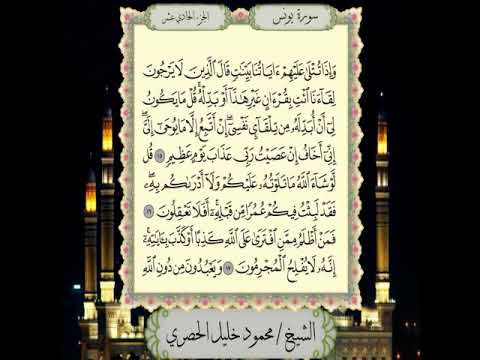 سورة يونس
الجزء الحادي عشر
وَإِذَا تُتْلَىٰ عَلَيْهِمْ ءَايَاتُنَا بَيِّنَٰتٍ قَالَ ٱلَّذِينَ لَا يَرْجُونَ
لِقَآءَنَا ٱئْتِ بِقُرْءَانٍ غَيْرِ هَٰذَآ أَوْ بَدِّلْهُ ۚ قُلْ مَا يَكُونُ
لِىٓ أَنْ أُبَدِّلَهُۥ مِن تِلْقَآئِ نَفْسِىٓ ۖ إِنْ أَتَّبِعُ إِلَّا مَا يُوحَىٰٓ إِلَىَّ ۖ
إِنِّىٓ أَخَافُ إِنْ عَصَيْتُ رَبِّى عَذَابَ يَوْمٍ عَظِيمٍ ١٥ قُل
لَّوْ شَآءَ ٱللَّهُ مَا تَلَوْتُهُۥ عَلَيْكُمْ وَلَآ أَدْرَىٰكُم بِهِۦ ۖ
فَقَدْ لَبِثْتُ فِيكُمْ عُمُرًا مِّن قَبْلِهِۦٓ ۚ أَفَلَا تَعْقِلُونَ ١٦
فَمَنْ أَظْلَمُ مِمَّنِ ٱفْتَرَىٰ عَلَى ٱللَّهِ كَذِبًا أَوْ كَذَّبَ بِـَٔايَٰتِهِۦٓ ۚ
إِنَّهُۥ لَا يُفْلِحُ ٱلْمُجْرِمُونَ ١٧ وَيَعْبُدُونَ مِن دُونِ ٱللَّهِ
الشيخ / محمود خليل الحصري